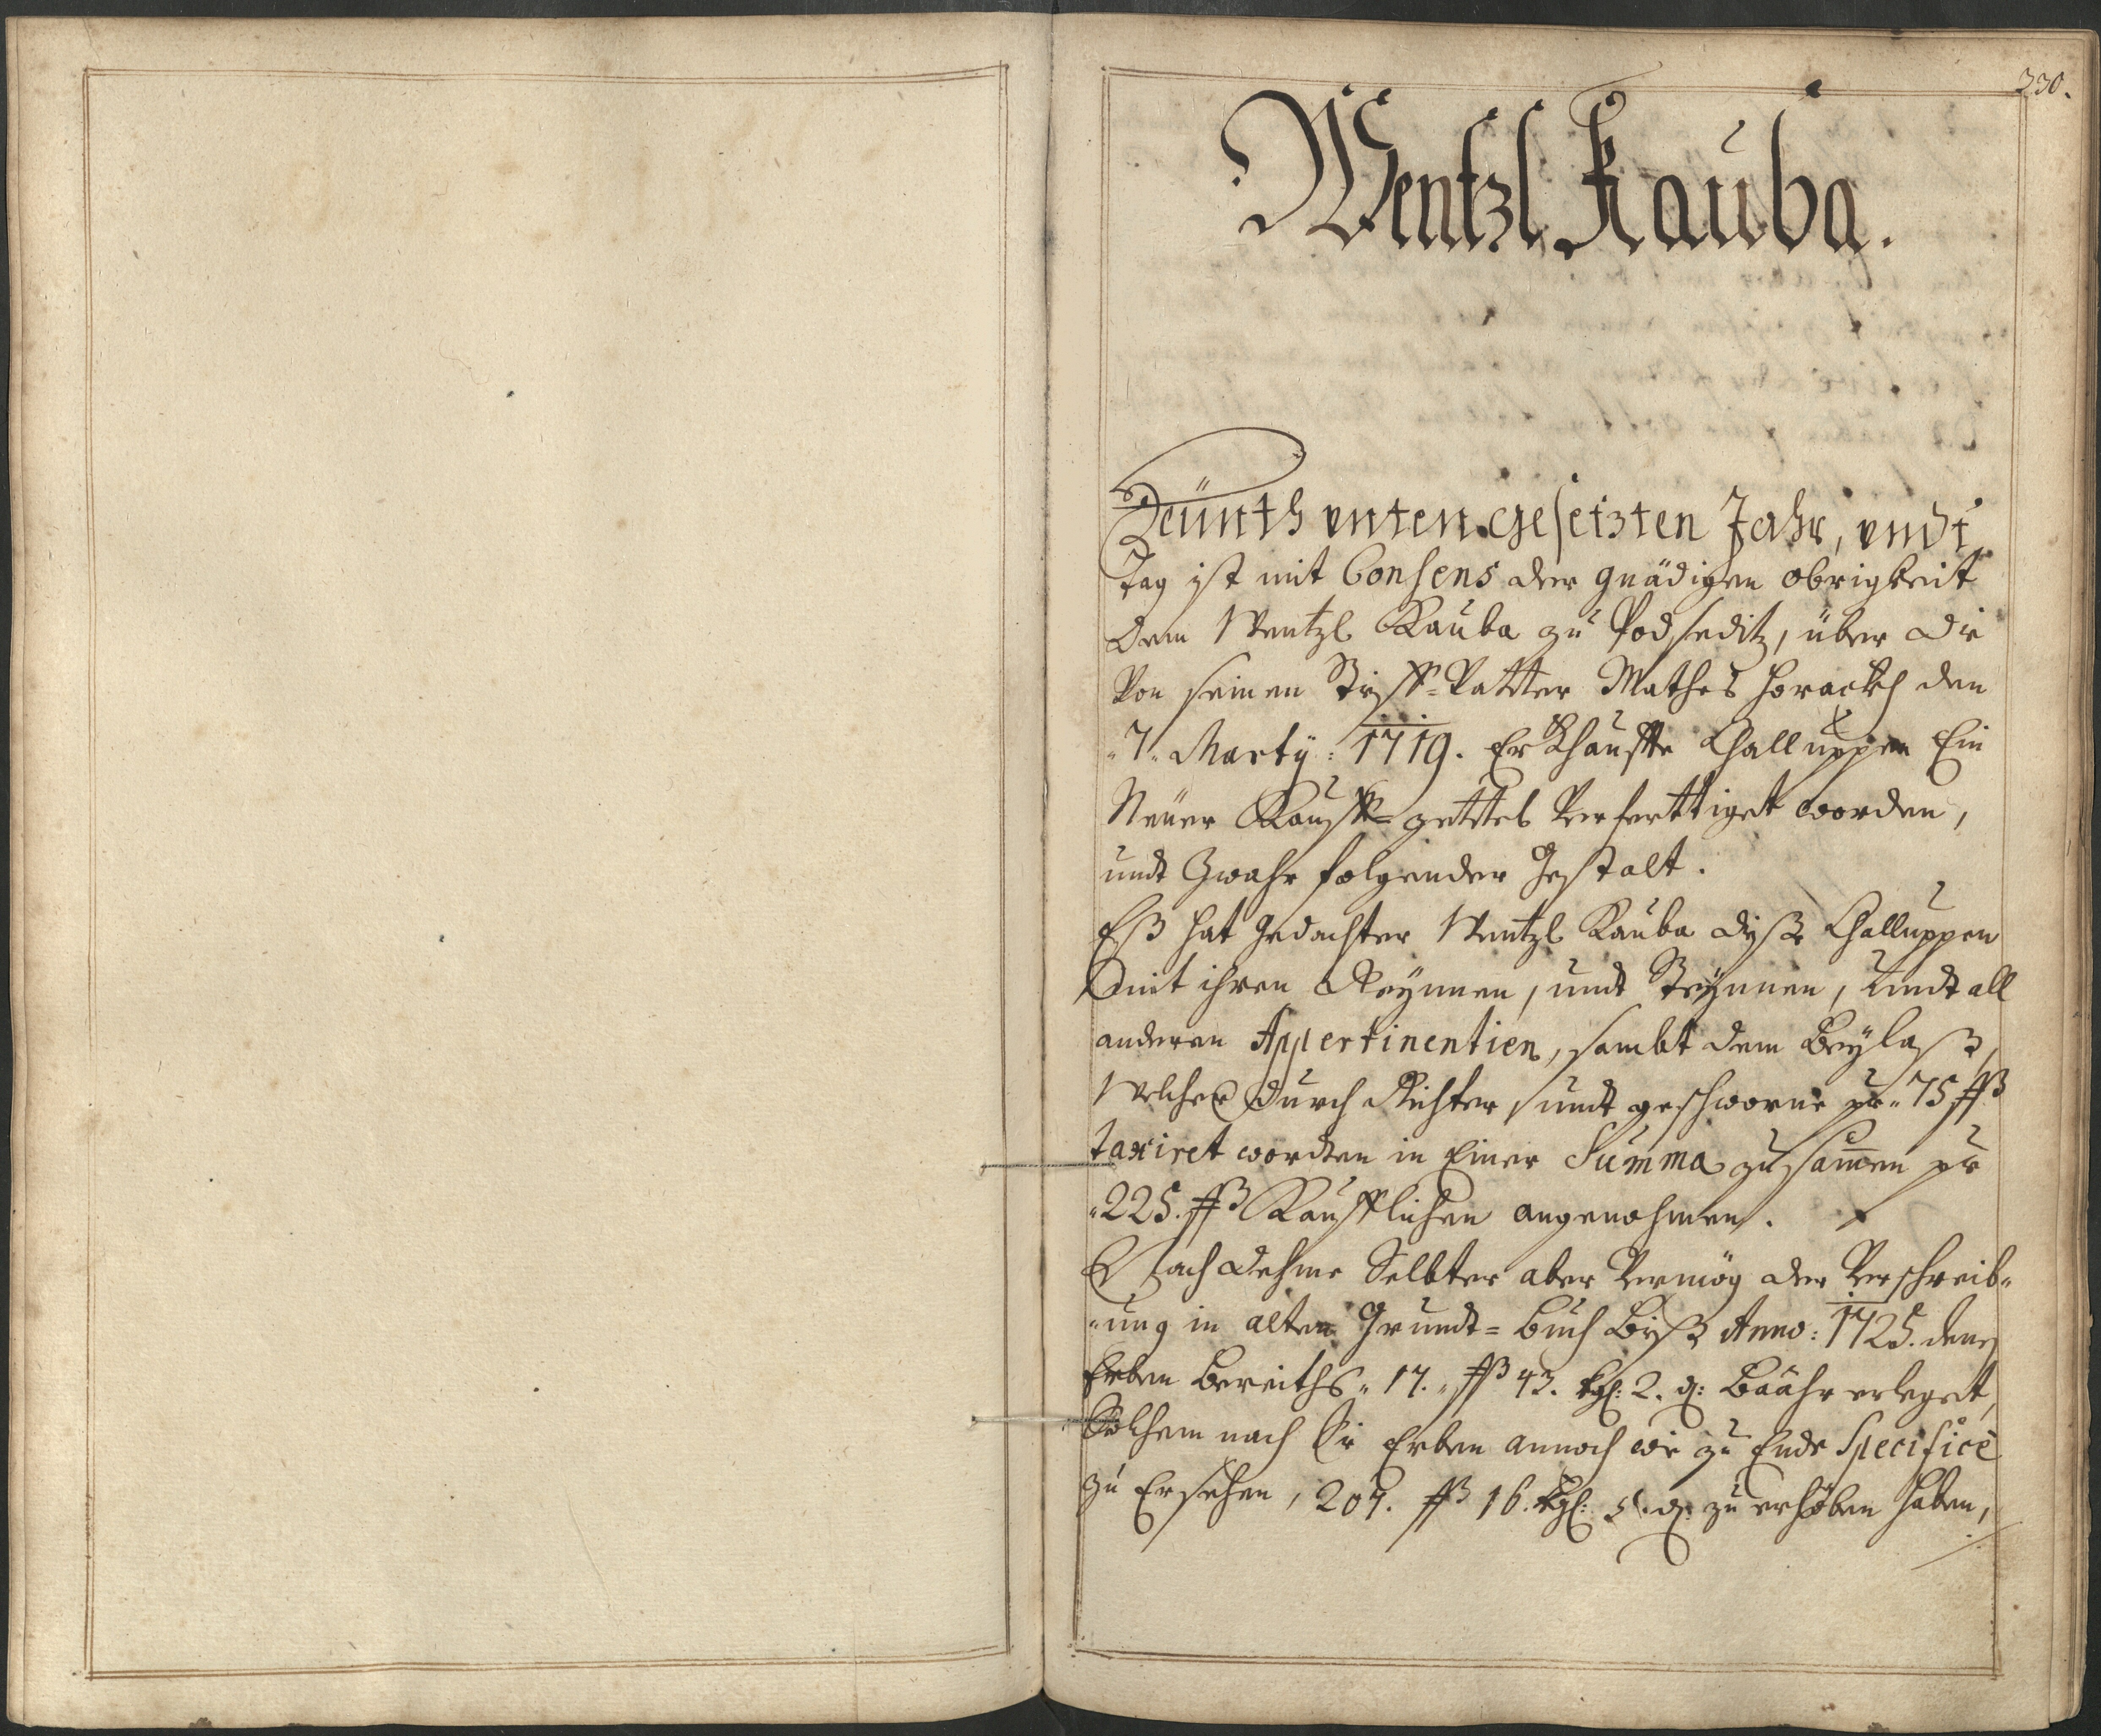 330.
Wentzl Kauba.
Heünth unten gesetzten Jahr, undt
Tag ist mit Consens der gnädigen obrigkeit
dem Wentzl Kauba zu Podseditz, über die
Von seinen Stieff-Vatter Mathes Horackh den
"7" Marty: 1719. Erkhauffte Challuppen Ein
Neüer Kauff-zettel Verferttiget worden,
undt Zwahr folgender Gestalt.
Eß hat Gedachter Wentzl Kauba dieße Challuppen
mit ihren Reynnen, undt Steynnen, undt all
anderen Appertinentien, sambt dem Beylaß,
Welcher durch Richter undt geschworne pr "75 ßß
taxiret wordten in Einer Summa zusam̄en pr
"225. ßß Kaufflichen angenohmen.
Nach dehme Selbter aber Vermög der Verschreib-
"ung in alten Grundt-buch Biß Anno: 1725. denen
Erben Bereiths "17." ßß 43. kgl: 2. d: Baahr erleget,
Solchem nach die Erben annoch wie zu Ende Specificè
zu Ersehen, 207. ßß 16. kgl: 5. d: zu erhöben haben,